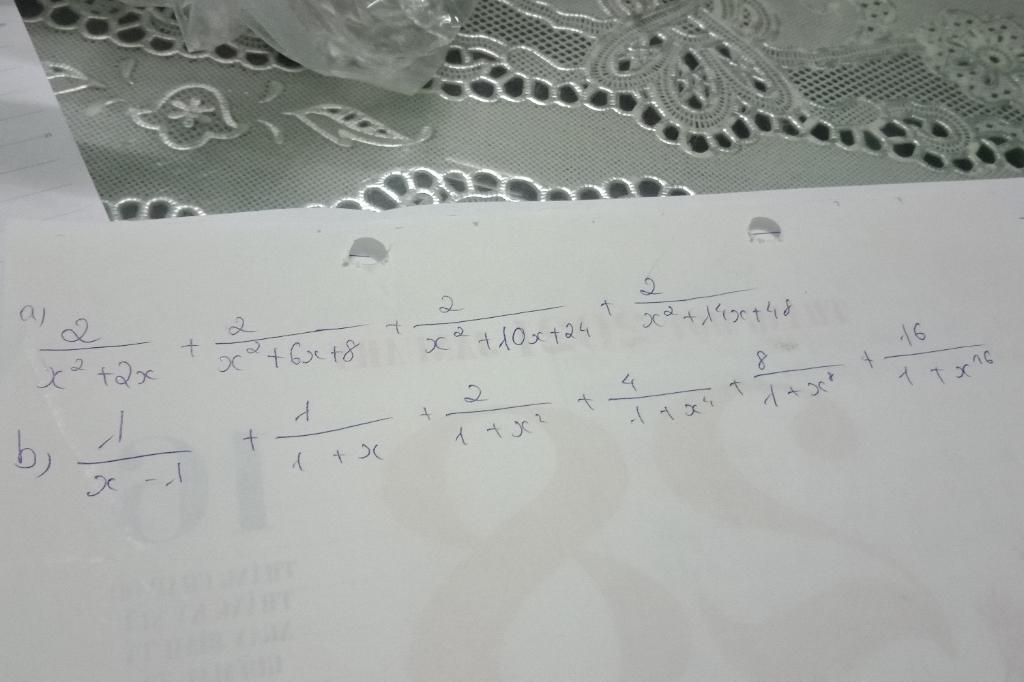 a) 2/(x² + 2x) + 2/(x² + 6x + 8) + 2/(x² + 10x + 24) + 2/(x² + 14x + 48)
b) 1/(x - 1) + 1/(1 + x) + 2/(1 + x²) + 4/(1 + x⁴) + 8/(1 + x⁸) + 16/(1 + x¹⁶)